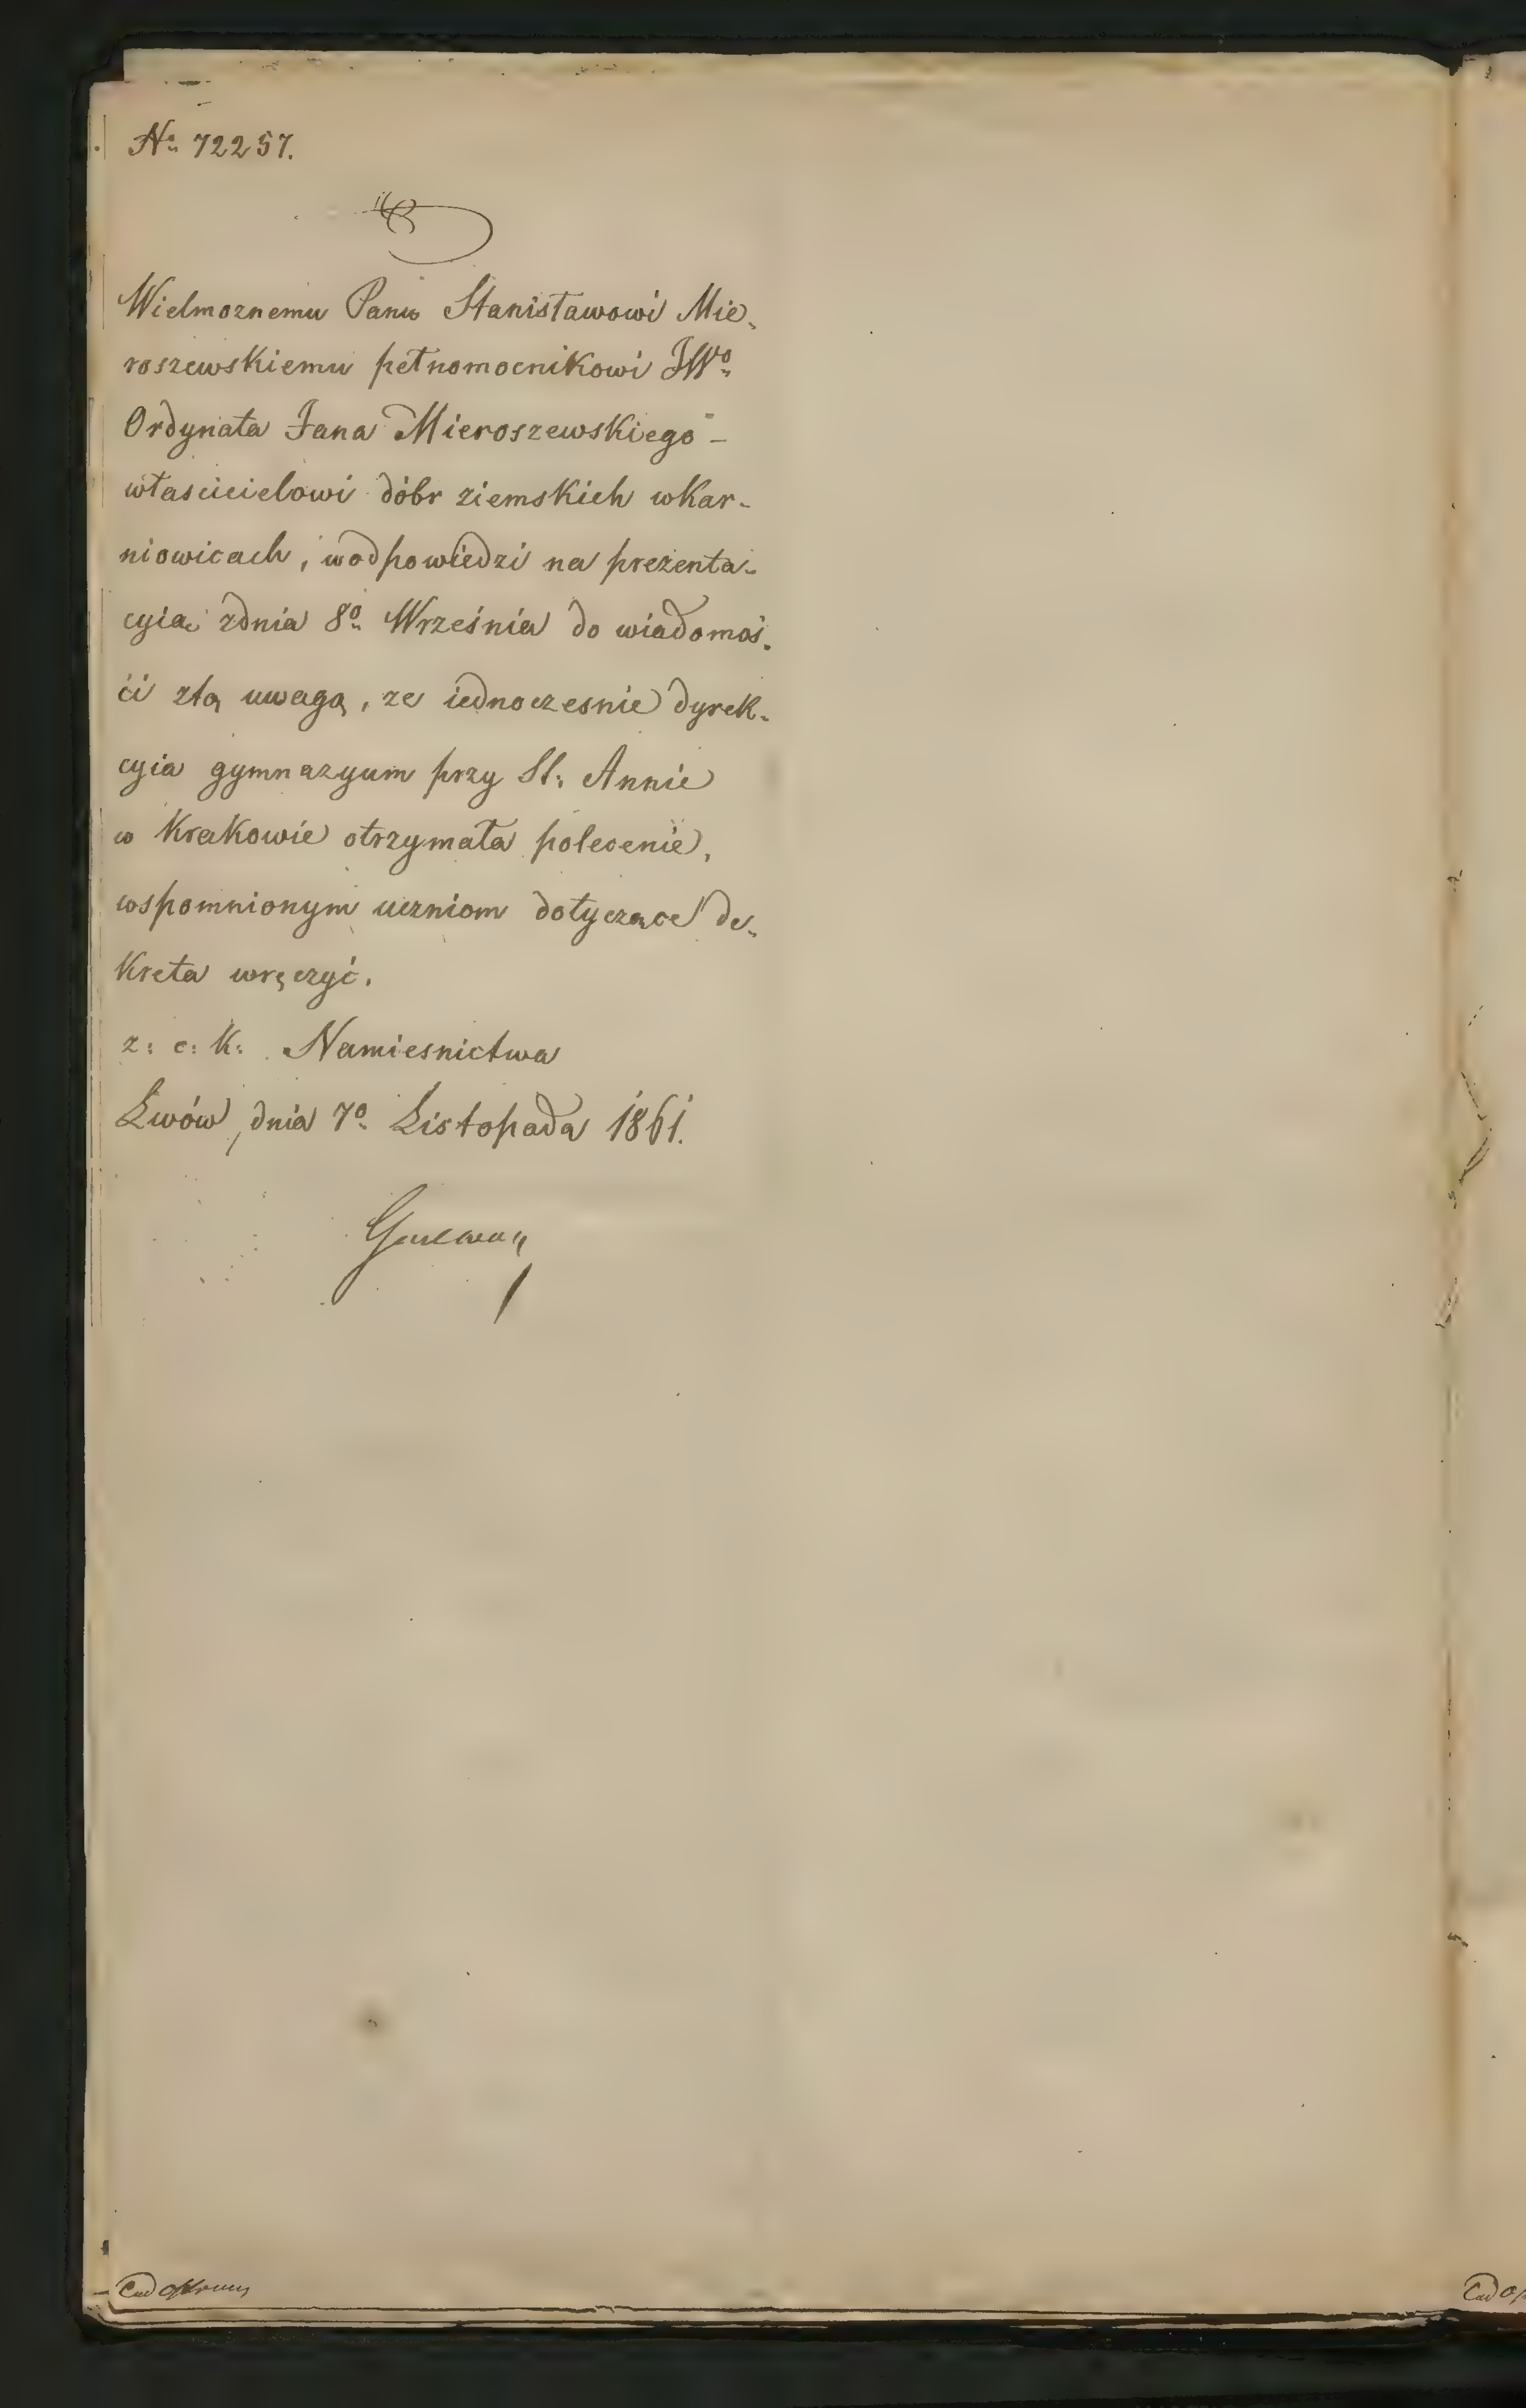 No. 72257.
Wielmoznemu Panu Stanisławowi Mie-
roszewskiemu pełnomocnikowi JWo
Ordynata Jana Mieroszewskiego -
właścicielowi dóbr ziemskich wKar-
niowicach, wodpowiedzi na prezenta-
cyią zdnia 8o Września do wiadomoś-
ći ztą uwagą, ze iednoczesnie dyrek-
cyia gymnazyum przy St: Annie
w Krakowie otrzymała polecenie,
wspomnionym uczniom dotyczące de-
kreta wręczyć.
z: c: k: Namiesnictwa
Lwów, dnia 7o Listopada 1861.